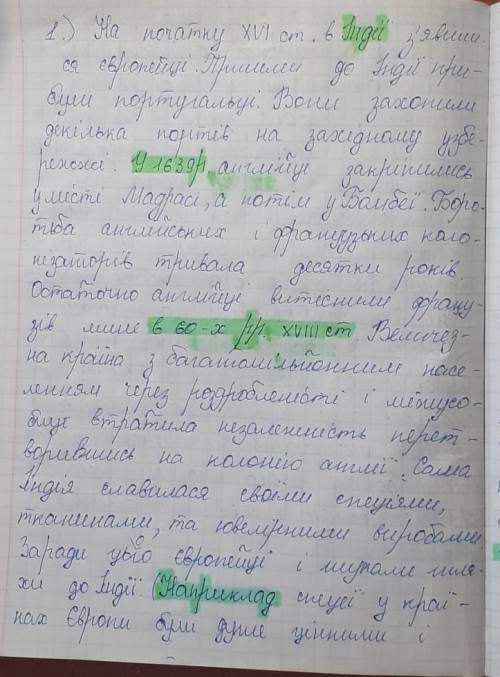 1.) На початку XVI ст. в Індії з'явили-
ся європейці. Першими до Індії при-
були португальці. Вони захопили
декілька портів на західному узбе-
режжі. У 1639р. англійці закріпились
у місті Мадрасі, а потім у Бомбеї. Боро-
тьба англійських і французьких коло-
нізаторів тривала десятки років.
Остаточно англійці витіснили францу-
зів лише в 60-х рр. XVIII ст. Величез-
на країна з багатомільйонним насе-
ленням через роздробленість і міжусо-
биці втратила незалежність перет-
ворившись на колонію англії. Сама
Індія славилася своїми спеціями,
тканинами, та ювелірними виробами.
Заради цього європейці і шукали шля-
хи до Індії. (Наприклад спеції у краї-
нах Європи були дуже цінними і